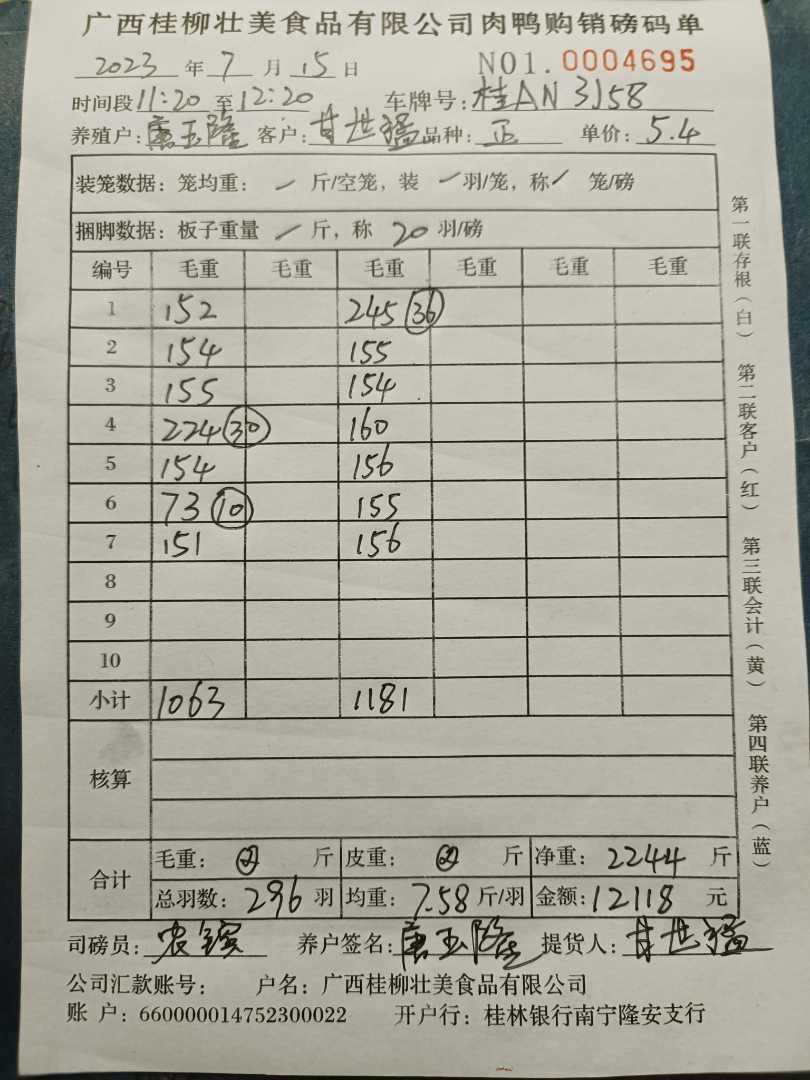 广西桂柳壮美食品有限公司肉鸭购销磅码单
2023 年 7 月 15 日 NO1. 0004695
时间段 11:20 至 12:20 车牌号: 桂AN3J58
养殖户: 唐玉隆 客户: 甘世猛 品种: 正 单价: 5.4
装笼数据: 笼均重: / 斤/空笼, 装 / 羽/笼, 称 / 笼/磅
捆脚数据: 板子重量 / 斤, 称 20 羽/磅
编号 毛重 毛重 毛重 毛重 毛重 毛重
1 152 245 (36)
2 154 155
3 155 154
4 224 (30) 160
5 154 156
6 73 (10) 155
7 151 156
8
9
10
小计 1063 1181
核算
合计
毛重: 斤 皮重: 斤 净重: 2244 斤
总羽数: 296 羽 均重: 7.58 斤/羽 金额: 12118 元
司磅员: 农 养户签名: 唐玉隆 提货人: 甘世猛
公司汇款账号: 户名: 广西桂柳壮美食品有限公司
账 户: 660000014752300022 开户行: 桂林银行南宁隆安支行
第一联存根(白) 第二联客户(红) 第三联会计(黄) 第四联养户(蓝)